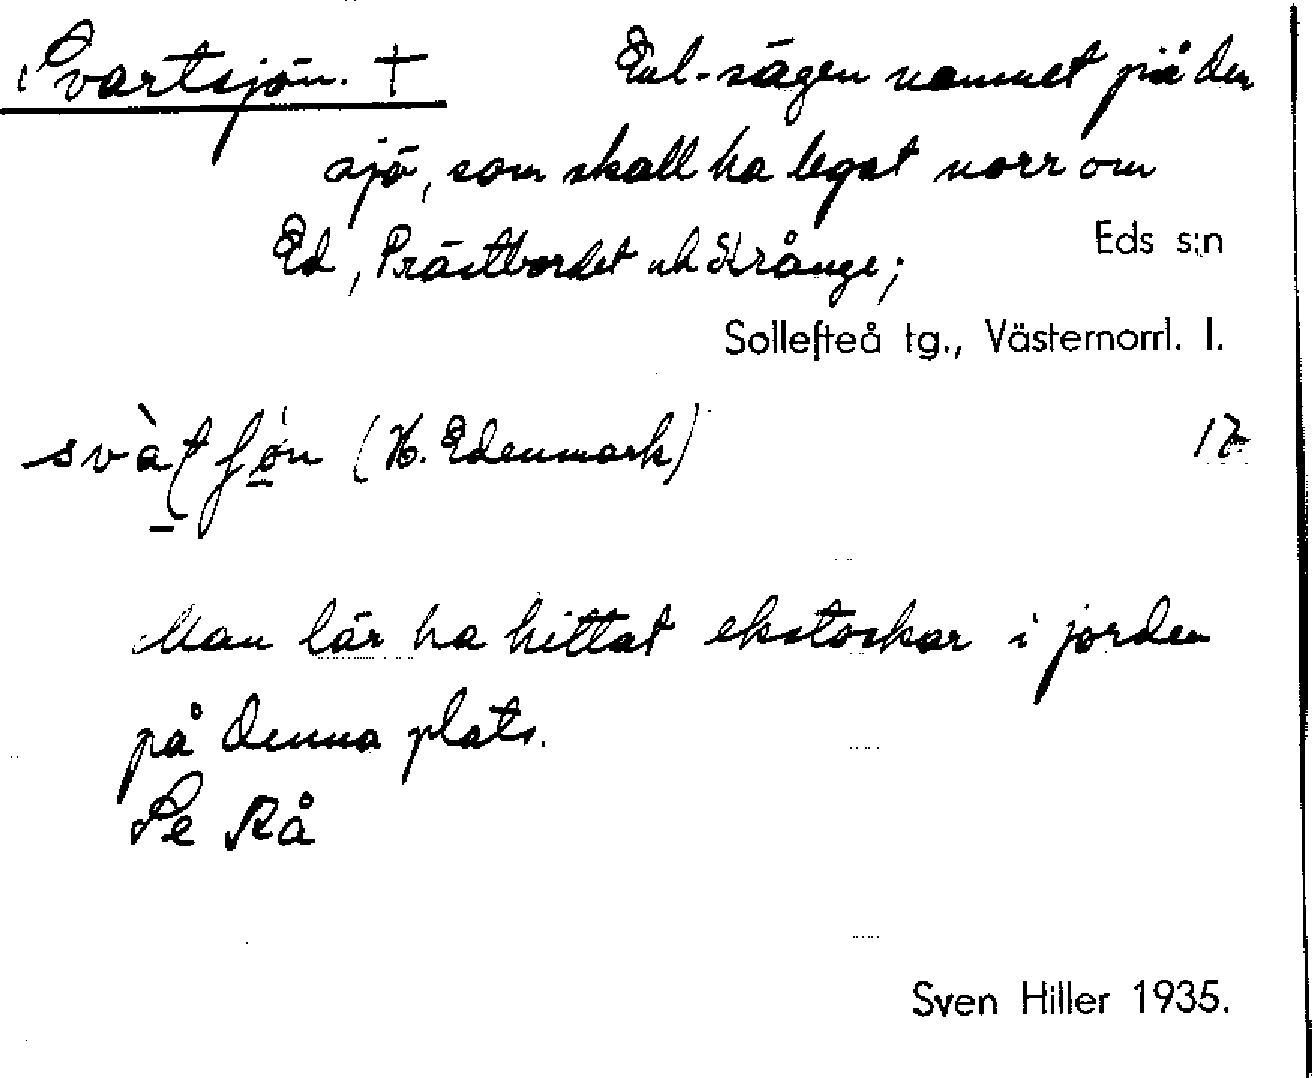 Svartsjön. † Enl. sägen namnet på den
sjö, som skall ha legat norr om
Ed, Prästbordet och Krånge;
Eds s:n
Sollefteå tg., Västernorrl. l.
(H. Edenmark) 17
Man lär ha hittat ekstockar i jorden
på denna plats.
Se Rå
Sven Hiller 1935.